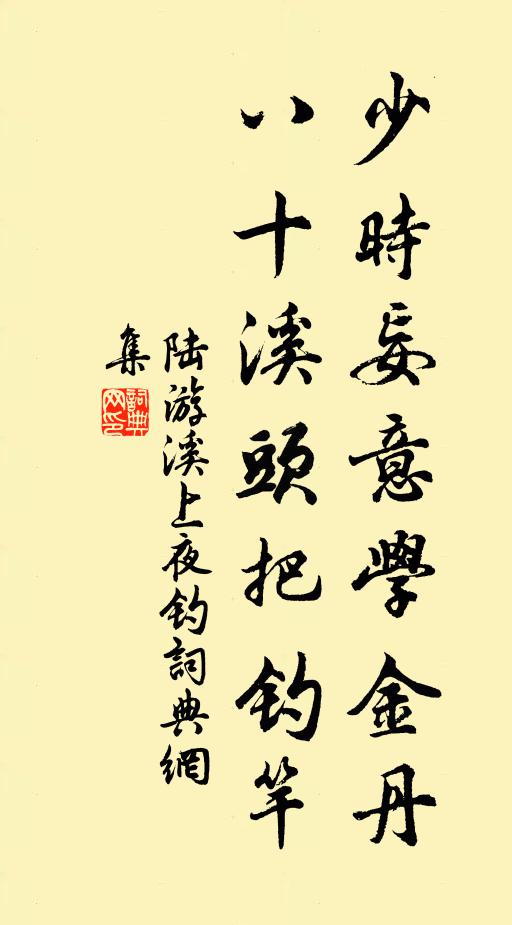 少時妄意學金丹
八十溪頭把釣竿
陸游溪上夜釣詞典網
集
詞典网印